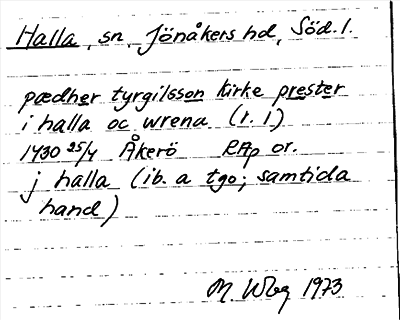 Halla, sn, Jönåkers hd, Söd. l.
pædher tyrgilsson kirke prester
i halla oc wrena (r. 1)
1430 25/4 Åkerö RAp or.
j halla (ib. a tgo; samtida
hand)
M. Wbg 1973